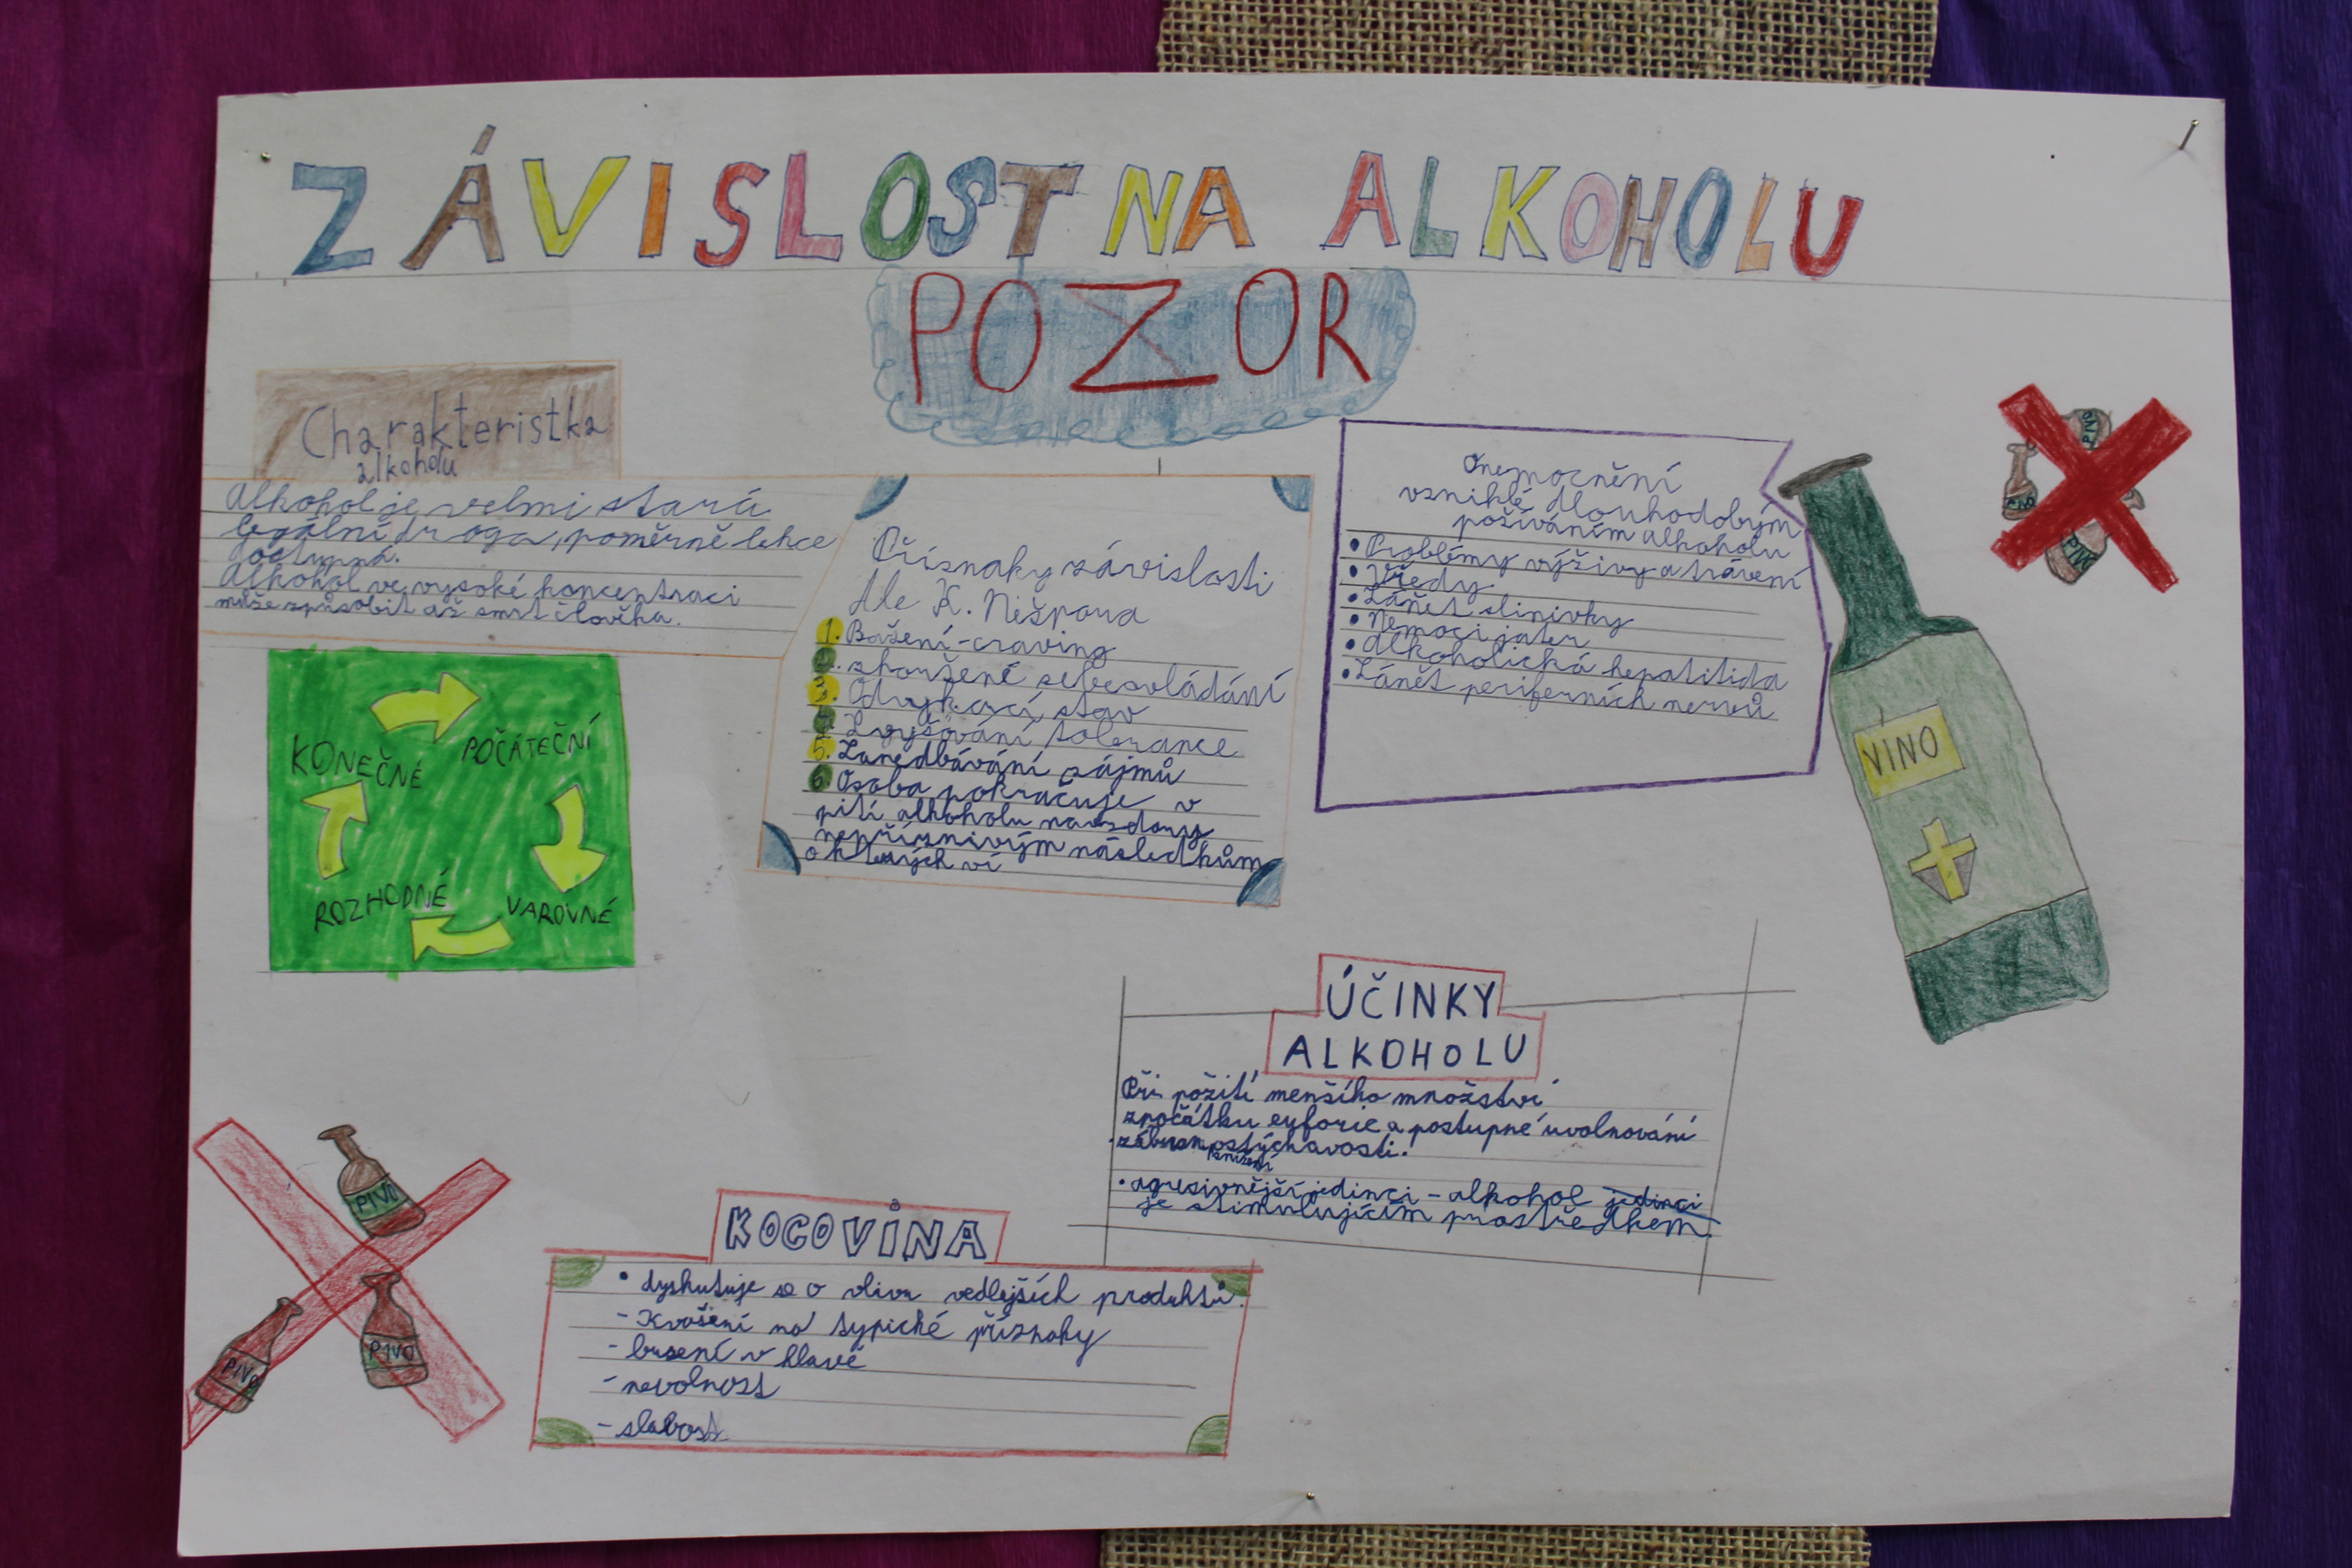 ZÁVISLOST NA ALKOHOLU
POZOR
Charakteristka
alkoholu
Alkohol je velmi stará
legální droga, poměrně lehce
dostupná.
Alkohol ve vysoké koncentraci
může způsobit až smrt člověka.
KONEČNÉ
POČÁTEČNÍ
ROZHODNÉ
VAROVNÉ
Příznaky závislosti
dle K. Nešpora
1. Bažení-craving
2. zhoršené sebeovládání
3. Odvykací stav
4. Zvyšování tolerance
5. Zanedbávání zájmů
6. Osoba pokračuje v
pití alkoholu navzdory
nepříznivým následkům
o kterých ví
Onemocnění
vzniklé dlouhodobým
požíváním alkoholu
• Problémy výživy a trávení
• Vředy
• Zánět slinivky
• Nemoci jater
• Alkoholická hepatitida
• Zánět periferních nervů
PIVO
PIVO
PIVO
VÍNO
ÚČINKY
ALKOHOLU
Při požití menšího množství
zpočátku euforie a postupné uvolnování
zábran ostýchavosti.
snížení
• agresivnější jedinci - alkohol jedinci
je stimulujícím prostředkem.
KOCOVINA
• dyskutuje se o vlivu vedlejších produktů.
- Kvašení na typické příznaky
- busení v hlavě
- nevolnost
- slabost
PIVO
PIVO
PIVO